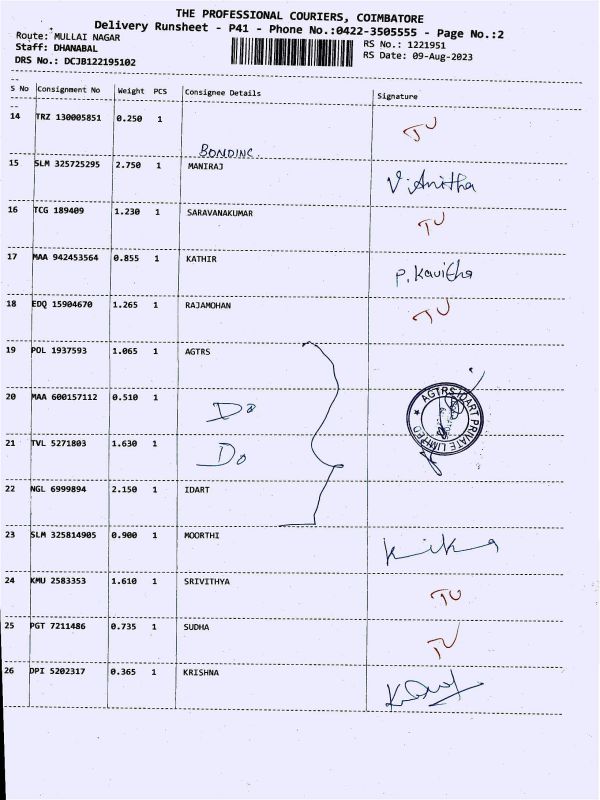 THE PROFESSIONAL COURIERS, COIMBATORE
Delivery Runsheet - P41 - Phone No.:0422-3505555 - Page No.:2
Route: MULLAI NAGAR
Staff: DHANABAL
DRS No.: DCJB122195102
RS No.: 1221951
RS Date: 09-Aug-2023
S No Consignment No Weight PCS Consignee Details Signature
14 TRZ 130005851 0.250 1 TU
BONDINC
15 SLM 325725295 2.750 1 MANIRAJ V. Anitha
16 TCG 189409 1.230 1 SARAVANAKUMAR TU
17 MAA 942453564 0.855 1 KATHIR P. Kavitha
18 EDQ 15904670 1.265 1 RAJAMOHAN TU
19 POL 1937593 1.065 1 AGTRS
20 MAA 600157112 0.510 1 Do
AGTRS IDART PRIVATE LIMITED
21 TVL 5271803 1.630 1 Do
22 NGL 6999894 2.150 1 IDART
23 SLM 325814905 0.900 1 MOORTHI
24 KMU 2583353 1.610 1 SRIVITHYA TU
25 PGT 7211486 0.735 1 SUDHA TU
26 DPI 5202317 0.365 1 KRISHNA